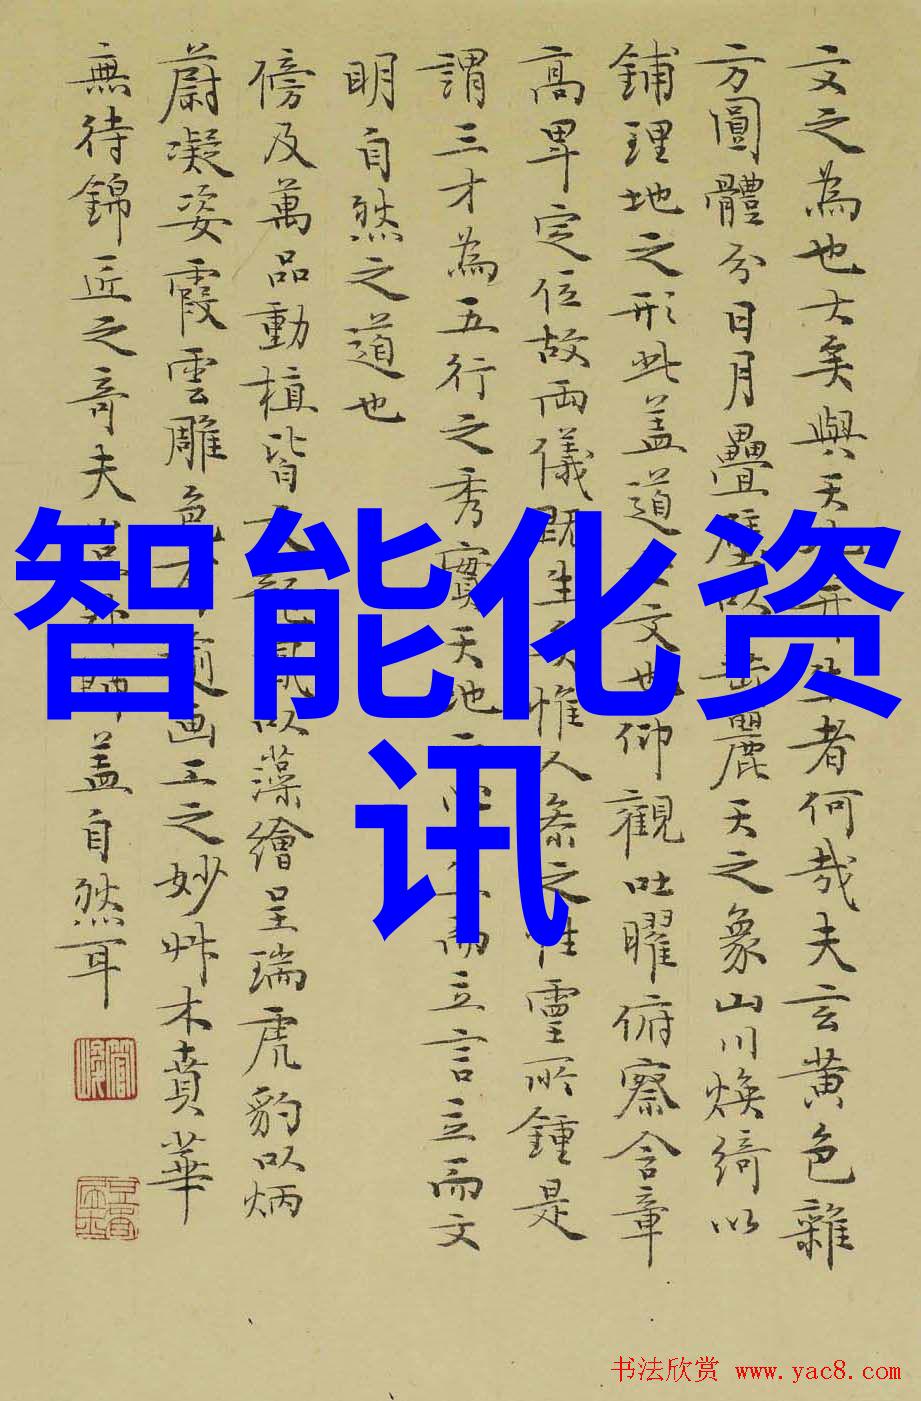 文之為也大矣與天地并生者何哉夫玄黄色雜
方圓體分日月疊璧以垂麗天之象山川焕綺以
鋪理地之形此盖道之文也仰觀吐曜俯察含章
高卑定位故兩儀既生矣惟人叅之性靈所鍾是
謂三才為五行之秀實天地心生而立言立而文
明自然之道也
傍及萬品動植皆文龍鳳以藻繪呈瑞虎豹以炳
蔚凝姿霞雲雕色有逾画工之妙艸木賁華
無待錦匠之奇夫豈外飾盖自然耳
智能化资
讯
书法欣赏 www.yac8.com